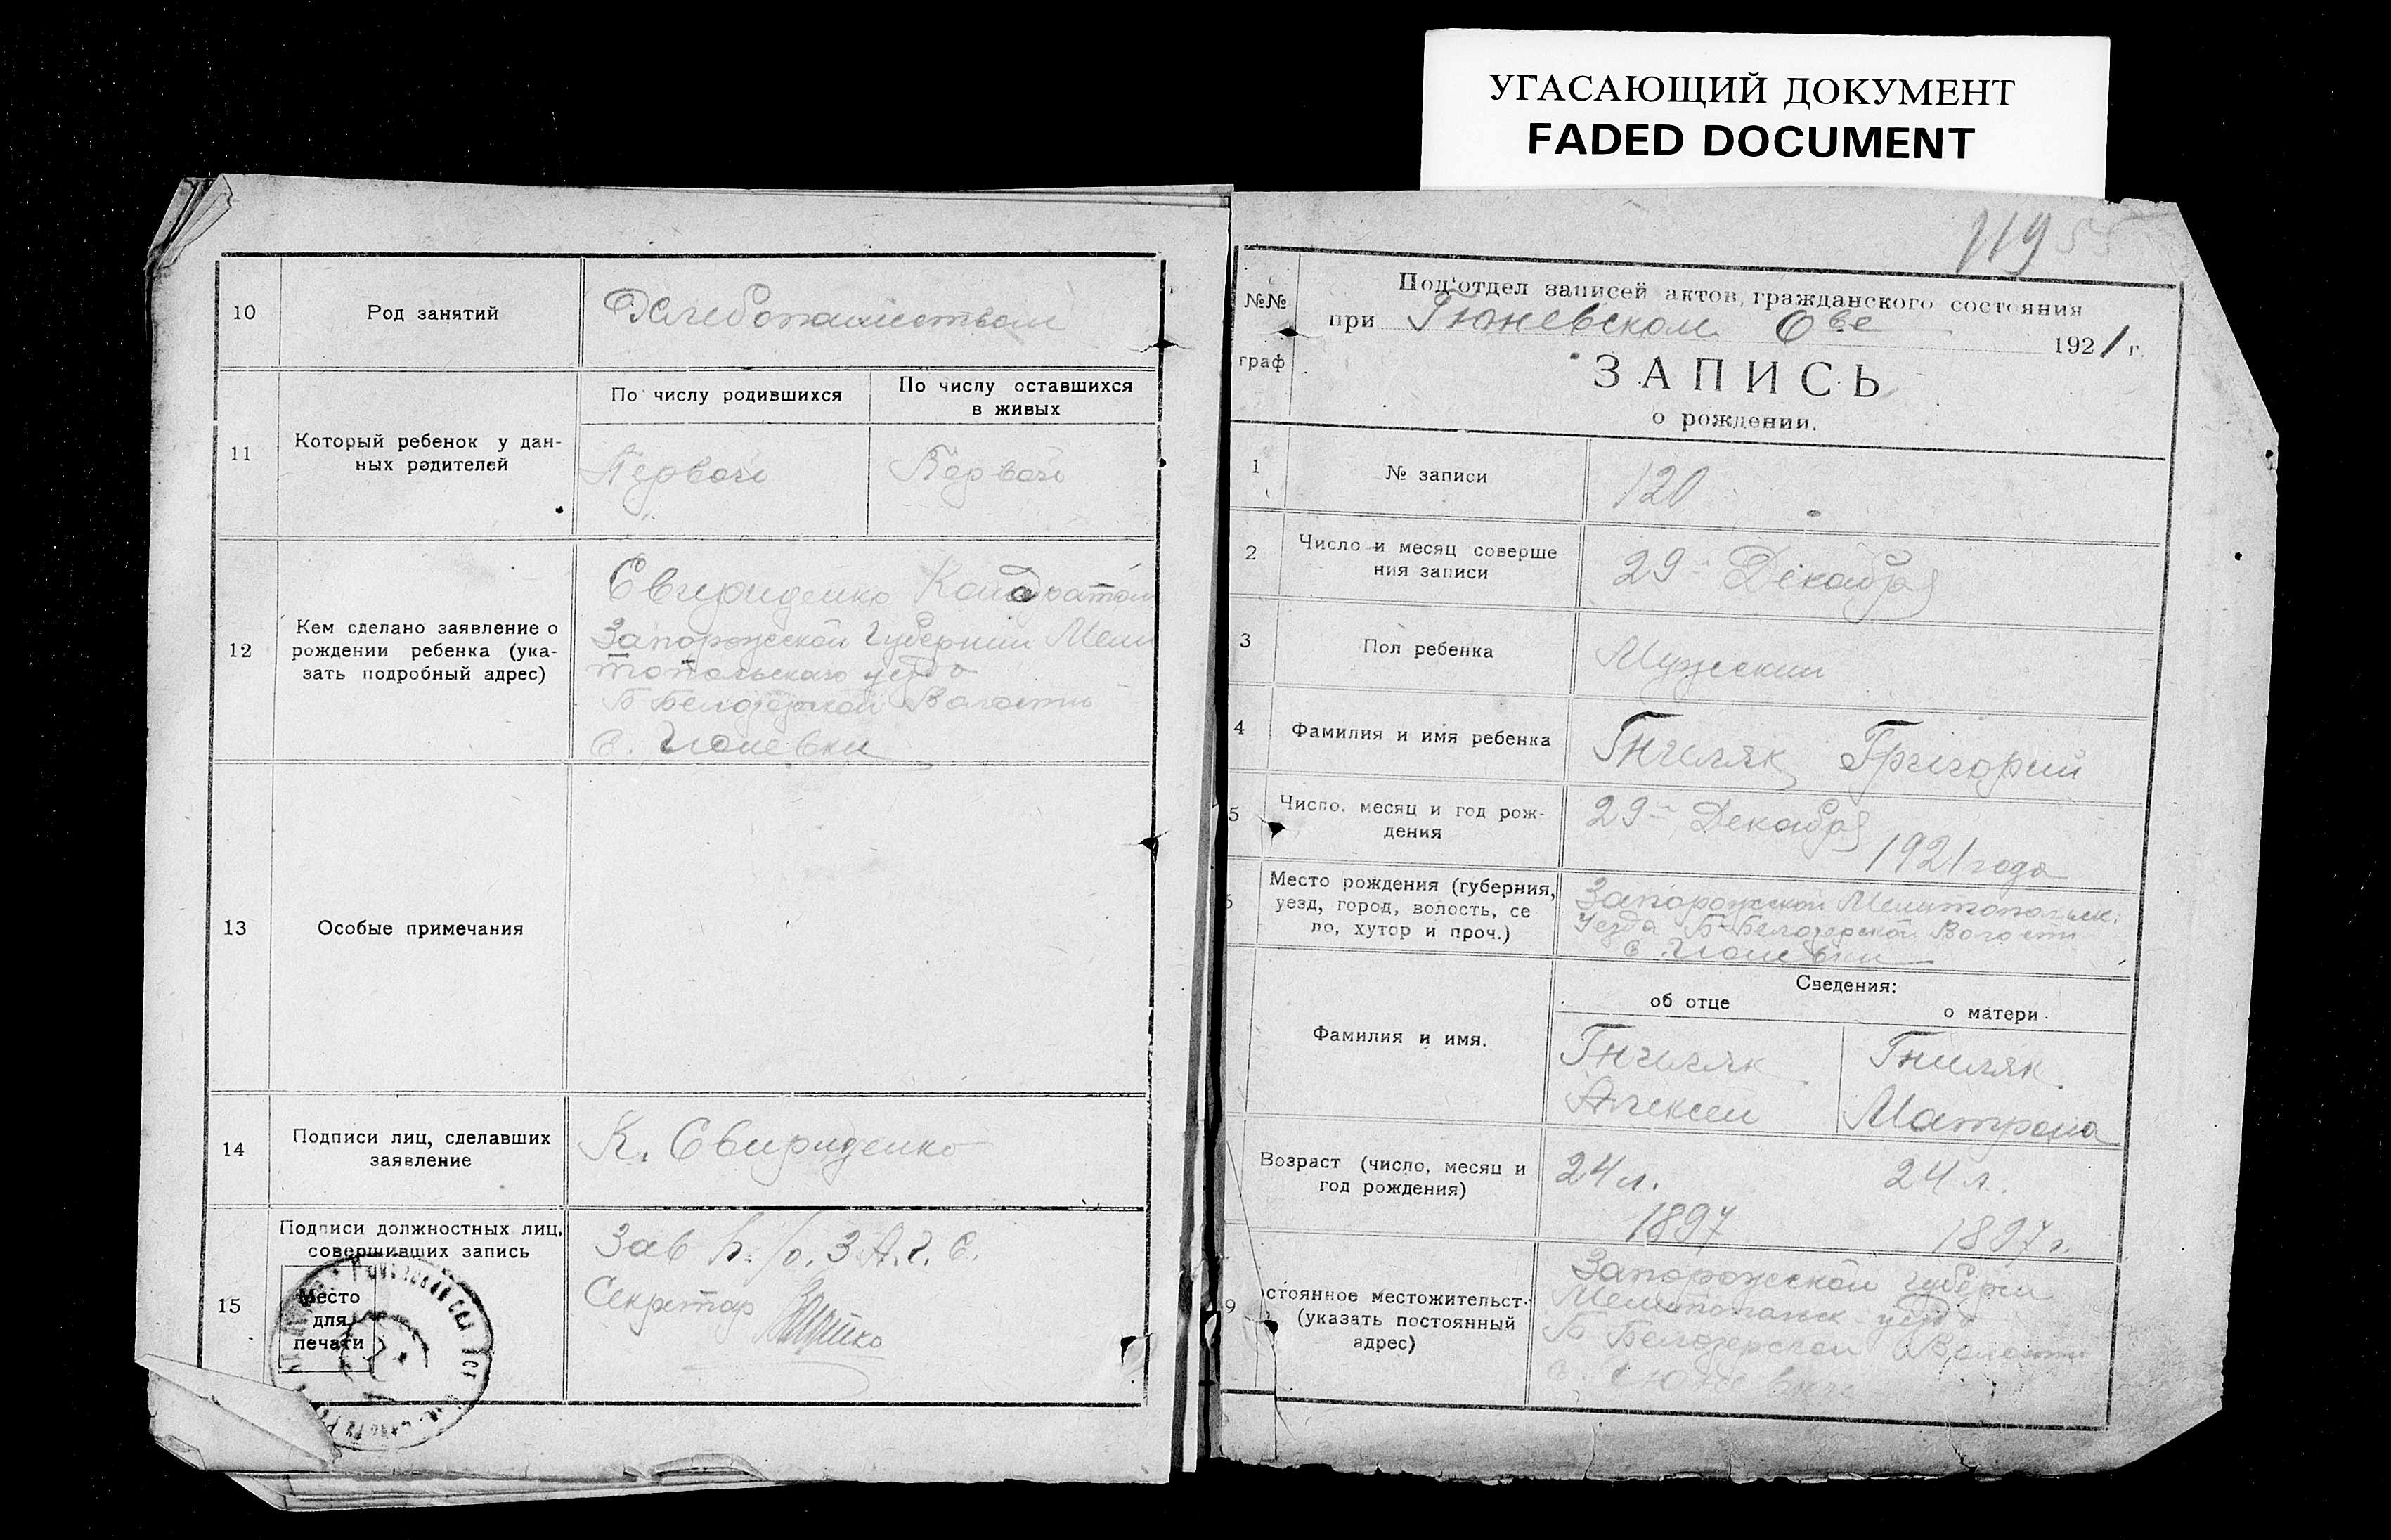 УГАСАЮЩИЙ ДОКУМЕНТ
FADED DOCUMENT
10
Род занятий
Хлебопашеством
11
Который ребенок у дан-
ных родителей
По числу родившихся
По числу оставшихся
в живых
Первой
Первой
12
Кем сделано заявление о
рождении ребенка (ука-
зать подробный адрес)
Свириденко Кондратом
Запорожской Губернии Мели
топольскаго уезда
Б-Белозерской Волости
с. Гюневки
13
Особые примечания
14
Подписи лиц, сделавших
заявление
К. Свириденко
15
Подписи должностных лиц,
совершивших запись
Место
для
печати
Зав п./о. З.А.Г.С.
Секретар
119
№№
граф
Под'отдел записей актов гражданского состояния
при Гюневском
1921 г.
ЗАПИСЬ
о рождении.
1
№ записи
120
2
Число и месяц соверше
ния записи
29 Декабря
3
Пол ребенка
Мужский
4
Фамилия и имя ребенка
Гниляк Григорий
5
Число, месяц и год рож-
дения
29 Декабря
1921 года
Место рождения (губерния,
уезд, город, волость, се
ло, хутор и проч.)
Запорожской Мелитопольск.
Уезда Б-Белозерской Волости
с. Гюневки
Сведения:
об отце
о матери
Фамилия и имя.
Гниляк
Алексей
Гниляк
Матрона
Возраст (число, месяц и
год рождения)
24 л.
1897
24 л.
1897 г.
9
стоянное местожительст-
(указать постоянный
адрес)
Запорожской Губерн
Мелитопольск уезд
Б Белозерской Волости
с. Гюневки